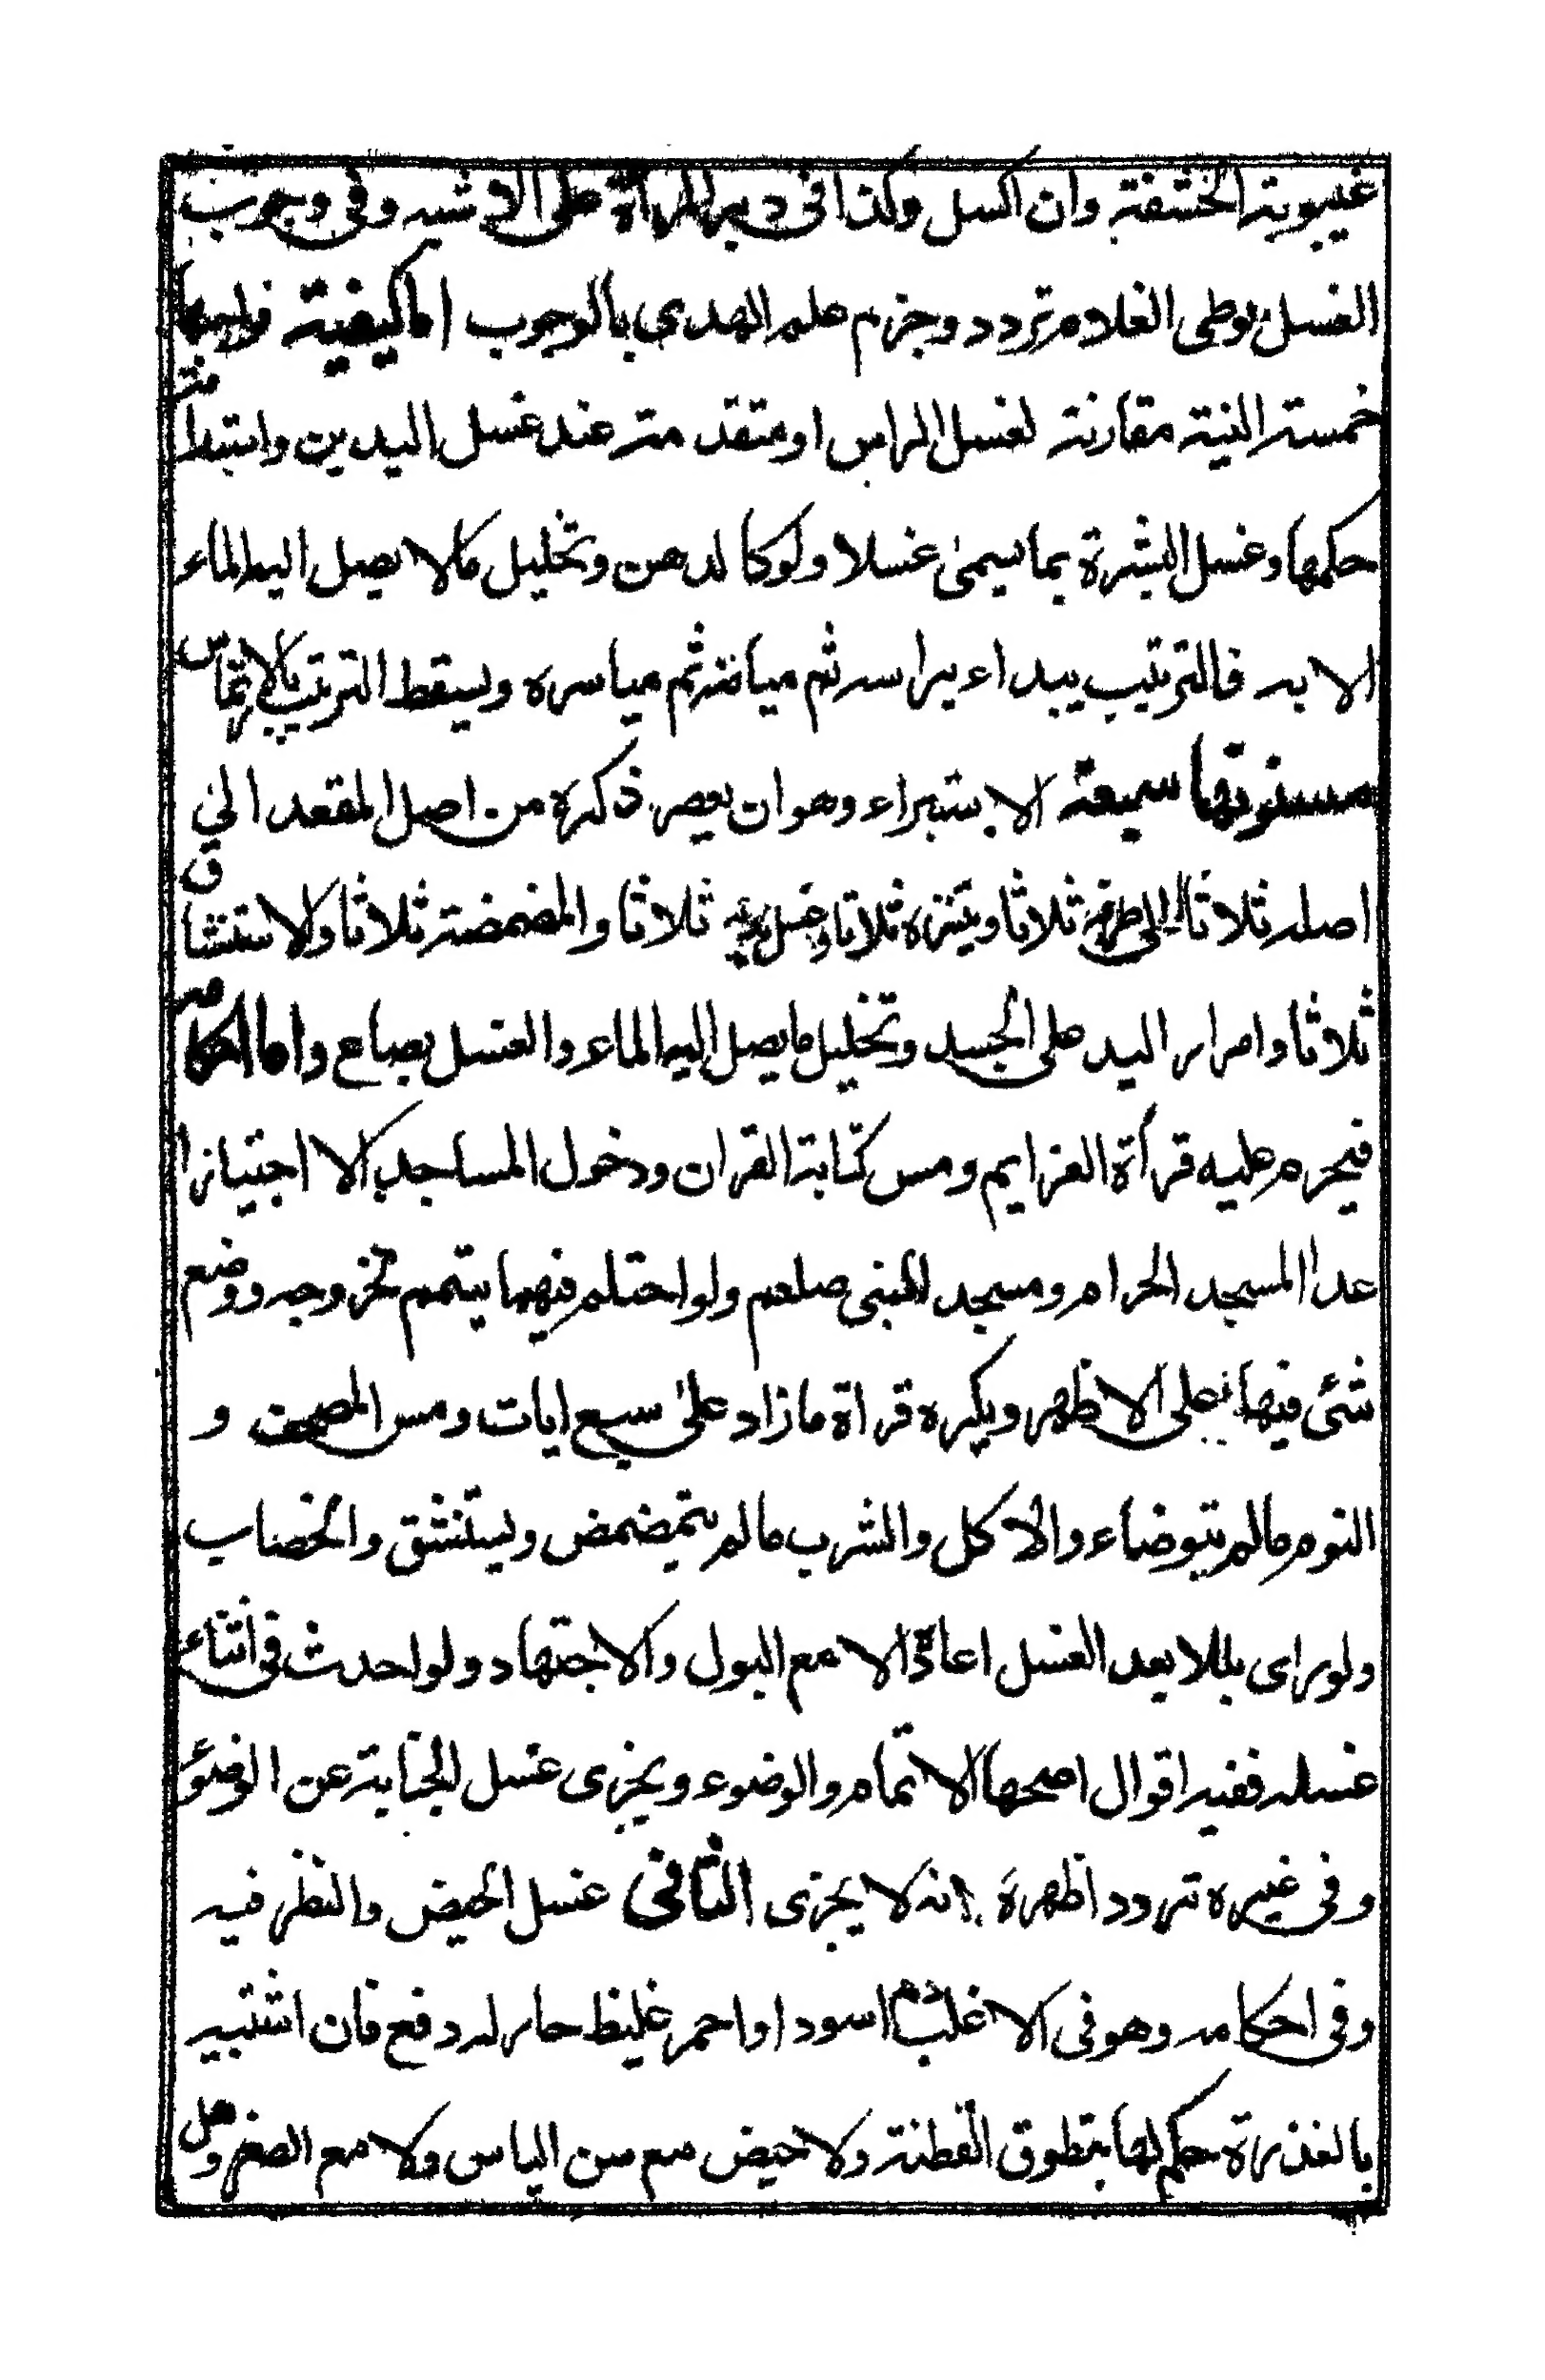 غيبوبة الحشفة وان اكسل وكذا في دبر المراة على الاشبه وفي وجوب
الغسل بوطى الغلام تردد وجزم علم الهدي بالوجوب اما كيفية فواجبها
خمسة النية مقارنة لغسل الراس او متقدمة عند غسل اليدين واستدامة
حكمها وغسل البشرة بما يسمى غسلا ولو كالدهن وتخليل ما لا يصل اليه الماء
الا به فالترتيب يبداء براسه ثم ميامنه ثم مياسره ويسقط الترتيب بالارتماس
مسنونها سبعة الاستبراء وهو ان يعصر ذكره من اصل المقعد الي
اصله ثلاثا الى طرفه ثلاثا وينتره ثلاثا وغسل يديه ثلاثا والمضمضة ثلاثا والاستنشاق
ثلاثا وامرار اليد على الجسد وتخليل ما يصل اليه الماء والغسل بصاع واما احكامه
فيحرم عليه قرأة العزايم ومس كتابة القران ودخول المساجد الا اجتيازا
عدا المسجد الحرام ومسجد النبي صلعم ولو احتلم فيهما يتمم لخروجه ووضع
شئ فيها على الاظهر ويكره قراة ما زاد على سبع ايات ومس المصحف و
النوم ما لم يتوضاء والاكل والشرب ما لم يتمضمض ويستنشق والخضاب
ولو راى بللا بعد الغسل اعادة الا مع البول والاجتهاد ولو احدث في اثناء
غسله ففيه اقوال اصحها الاتمام والوضوء ويجزى غسل الجنابة عن الوضوء
وفي غيره تردد اظهرة انه لا يجزى الثاني غسل الحيض والنظر فيه
وفي احكامه وهو في الاغلب دم اسود او احمر غليظ حار له دفع فان اشتبه
بالعذرة حكم لها بتطوق القطنة ولا حيض مع سن الياس ولا مع الصغر وهل